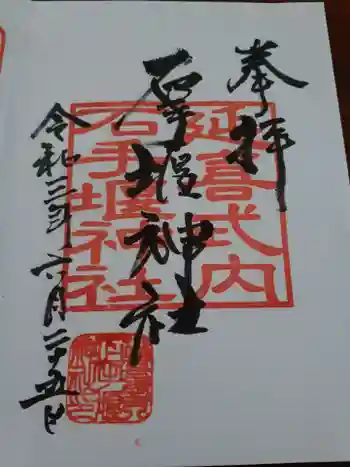 奉拝
延喜式内
石手堰神社
石手堰神社
令和三年六月二十五日